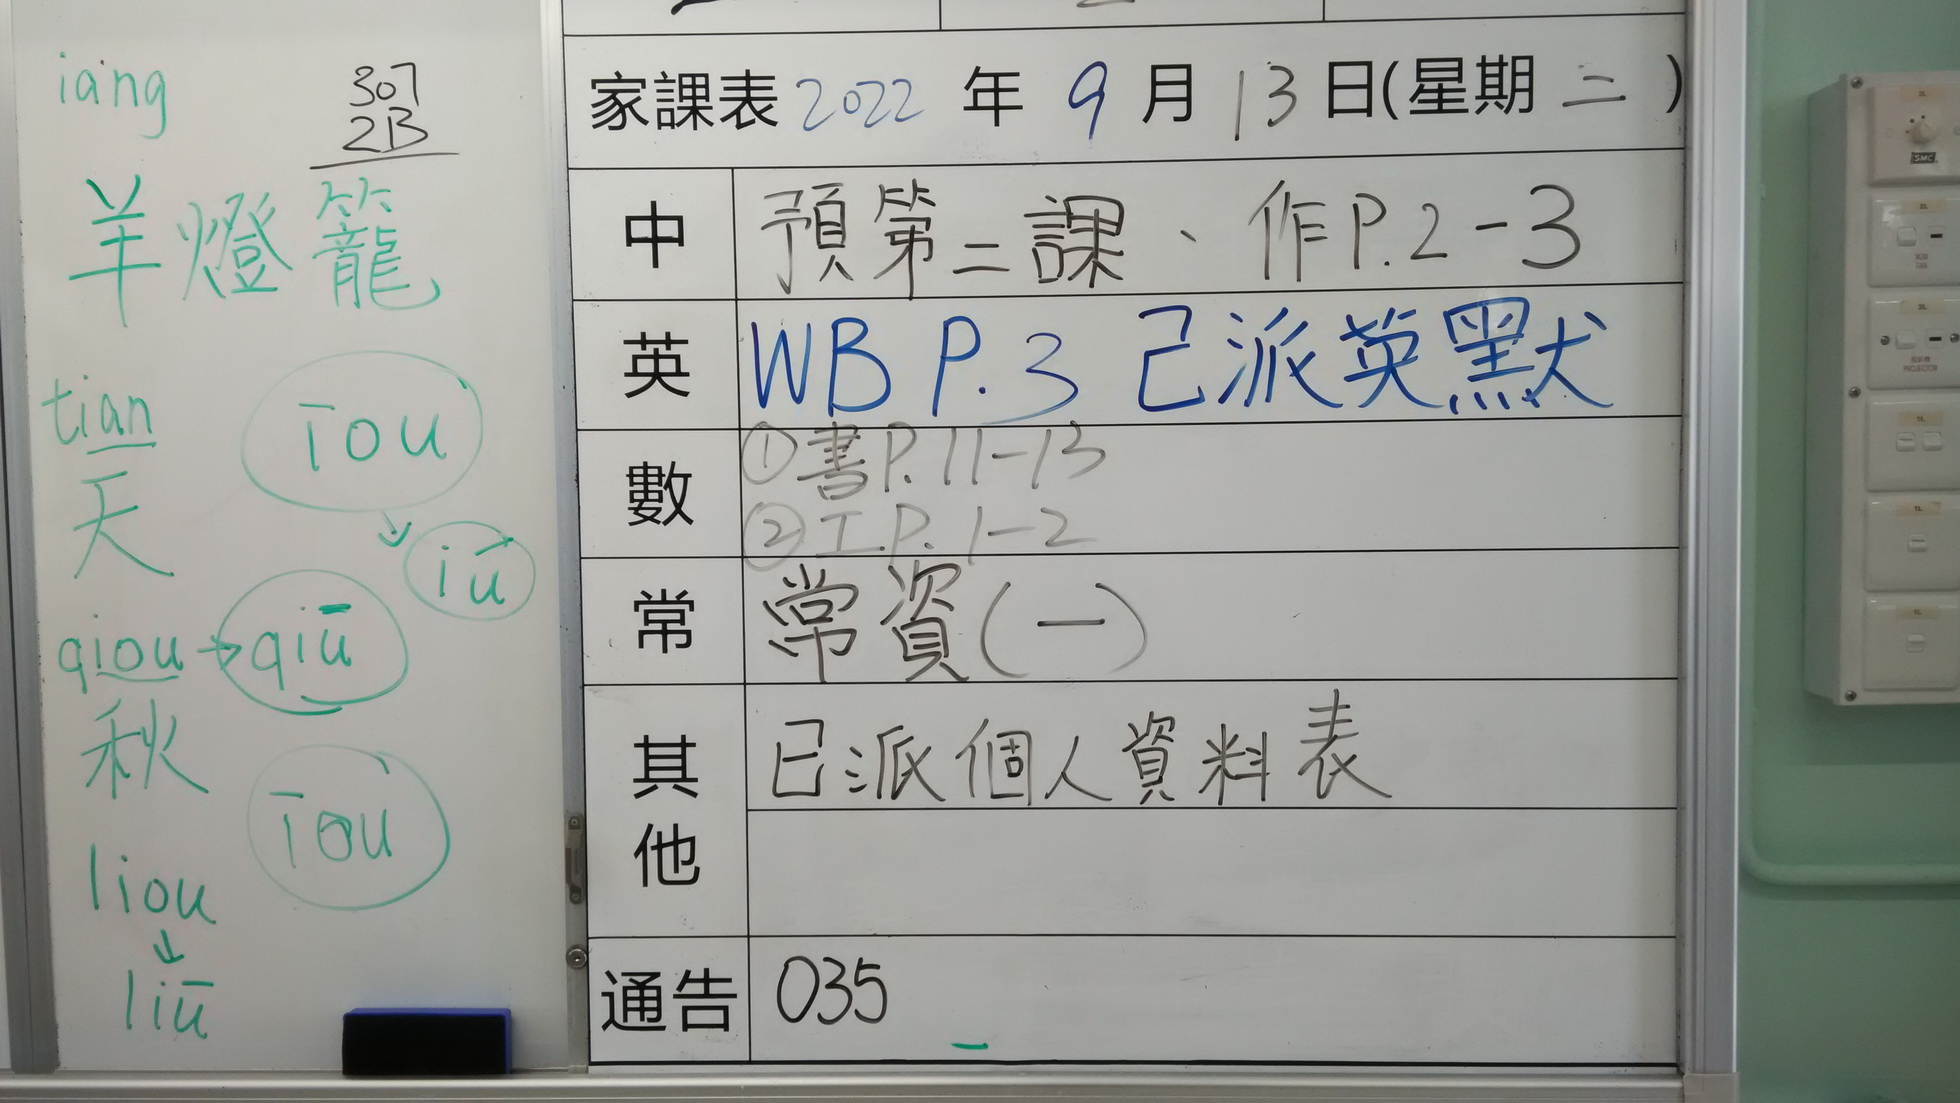 iang
307
2B
羊燈籠
tian
天
īou
iū
qiou → qiū
秋
īou
liou
liū
家課表 2022 年 9 月 13 日(星期 二 )
中 預第二課、作P.2-3
英 WB P.3 已派英默
數 ①書P.11-13
②I.P. 1-2
常 常資(一)
其他 已派個人資料表
通告 035
SMC
PROJECTOR